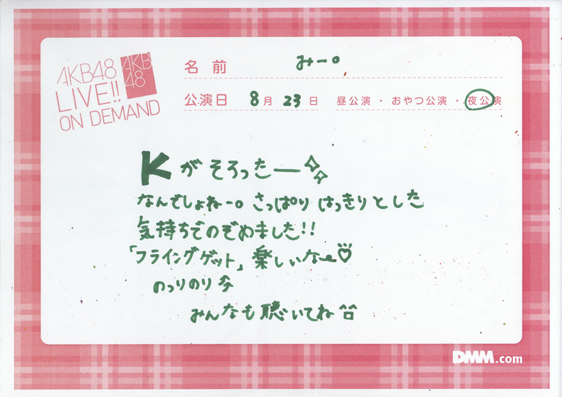 AKB48
LIVE!!
ON DEMAND
AKB
48
名 前 みー。
公演日 8月 23日 昼公演・おやつ公演・夜公演
Kがそろったー
なんでしょねー。さっぱりはっきりとした
気持ちでのぞめました!!
「フライングゲット」楽しいなー♡
のりのり
みんなも聴いてね
DMM.com